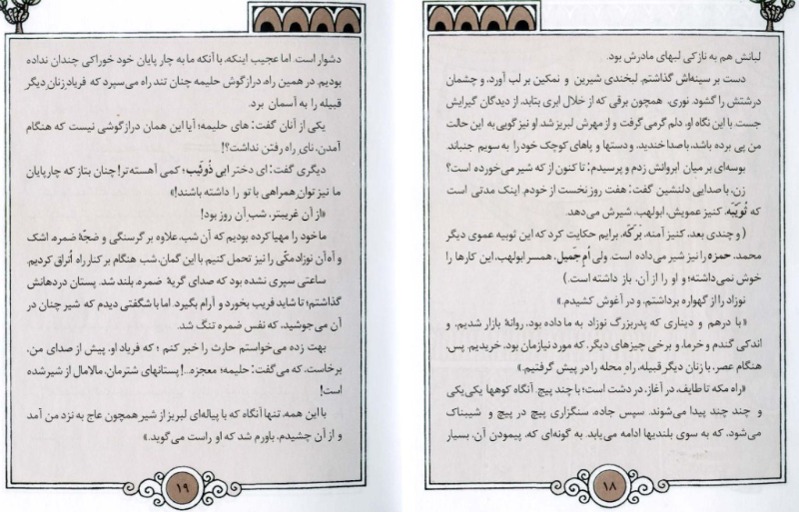 لبانش هم به نازکی لبهای مادرش بود.
دست بر سینه‌اش گذاشتم. لبخندی شیرین و نمکین بر لب آورد، و چشمان
درشتش را گشود. نوری، همچون برقی که از خلال ابری بتابد، از دیدگان گیرایش
جست. با این نگاه او، دلم گرمی گرفت و از مهرش لبریز شد. او نیز گویی به این حالت
من پی برده باشد، با صدا خندید، و دستها و پاهای کوچک خود را به سویم جنباند.
بوسه‌ای بر میان ابروانش زدم و پرسیدم: تا کنون از که شیر می‌خورده است؟
زن، با صدایی دلنشین گفت: هفت روز نخست از خودم. اینک مدتی است
که ثُوَیْبَه، کنیز عمویش، ابولهب، شیرش می‌دهد.
( و چندی بعد، کنیز آمنه، بَرَکَه، برایم حکایت کرد که این ثوبیه عموی دیگر
محمد، حمزه را نیز شیر می‌داده است. ولی اُم جَمیل، همسر ابولهب، این کارها را
خوش نمی‌داشته؛ و او را از آن، باز داشته است.)
نوزاد را از گهواره برداشتم، و در آغوش کشیدم.»
«با درهم و دیناری که پدربزرگ نوزاد به ما داده بود، روانهٔ بازار شدیم. و
اندکی گندم و خرما، و برخی چیزهای دیگر، که مورد نیازمان بود، خریدیم. پس،
هنگام عصر، با زنان دیگر قبیله، راهِ محله را در پیش گرفتیم.»
«راه مکه تا طایف، در آغاز، در دشت است؛ با چند پیچ. آنگاه کوهها یکی‌یکی
و چند چند پیدا می‌شوند. سپس جاده، سنگزاری پیچ در پیچ و شیبناک
می‌شود، که به سوی بلندیها ادامه می‌یابد. به گونه‌ای که، پیمودن آن، بسیار
۱۸
دشوار است. اما عجیب اینکه، با آنکه ما به چارپایان خود خوراکی چندان نداده
بودیم. در همین راه، درازگوش حلیمه چنان تند راه می‌سپرد که فریاد زنانِ دیگر
قبیله را به آسمان برد.
یکی از آنان گفت: های حلیمه؛ آیا این همان درازگوشی نیست که هنگام
آمدن، نای راه رفتن نداشت؟!
دیگری گفت: ای دختر ابی ذُوئَیْب؛ کمی آهسته‌تر! چنان بتاز که چارپایان
ما نیز توان همراهی با تو را داشته باشند!»
«از آن غریبتر، شبِ آن روز بود!
ما خود را مهیا کرده بودیم که آن شب، علاوه بر گرسنگی و ضجهٔ ضمره، اشک
و آه آن نوزاد مکّی را نیز تحمل کنیم. با این گمان، شب هنگام بر کنار راه اُتراق کردیم.
ساعتی سپری نشده بود که صدای گریهٔ ضمره، بلند شد. پستان در دهانش
گذاشتم؛ تا شاید فریب بخورد و آرام بگیرد. اما با شگفتی دیدم که شیر چنان در
آن می‌جوشید، که نفس ضمره تنگ شد.
بهت زده می‌خواستم حارث را خبر کنم ؛ که فریاد او، پیش از صدای من،
برخاست. که می‌گفت: حلیمه؛ معجزه..! پستانهای شترمان، مالامال از شیر شده
است!
با این همه، تنها آنگاه که با پیاله‌ای لبریز از شیر همچون عاج به نزد من آمد
و از آن چشیدم، باورم شد که او راست می‌گوید.»
۱۹